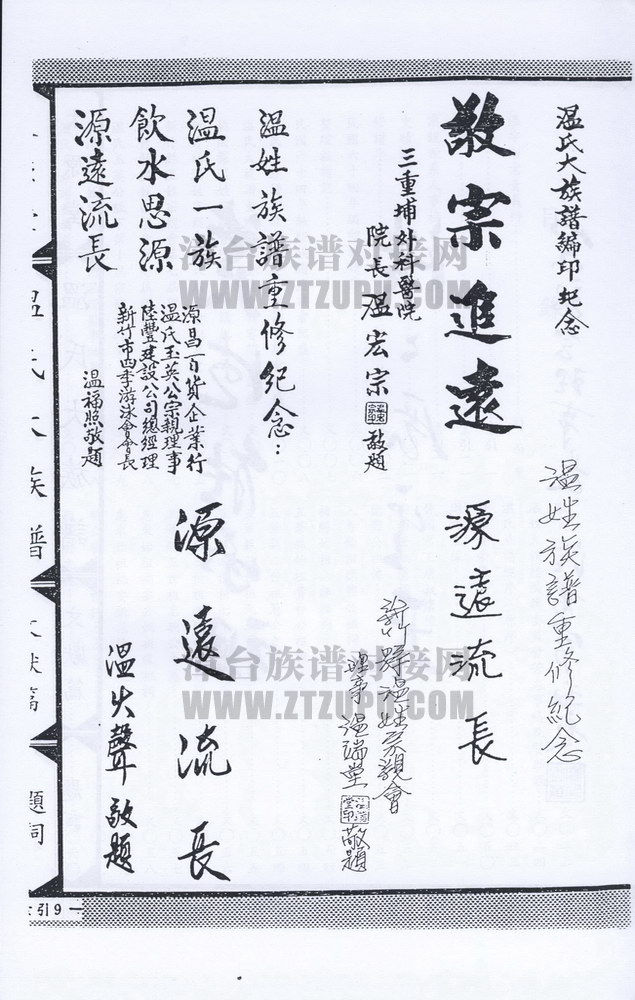 温氏大族譜編印紀念
敬宗追遠
三重埔外科醫院
院長 温宏宗 敬題
温姓族譜重修紀念：
温氏一族
飲水思源
源遠流長
源昌百貨企業行
温氏玉英公宗親理事
陸豐建設公司總經理
新竹市四季游泳會會長
温福照敬題
温姓族譜重修紀念
源遠流長
新竹縣温姓宗親會
理事 温瑞堂 敬題
源遠流長
温火聲敬題
温氏大族譜
文献篇
題詞
引9一
漳台族谱对接网
WWW.ZTZUPU.COM
漳台族谱对接网
WWW.ZTZUPU.COM